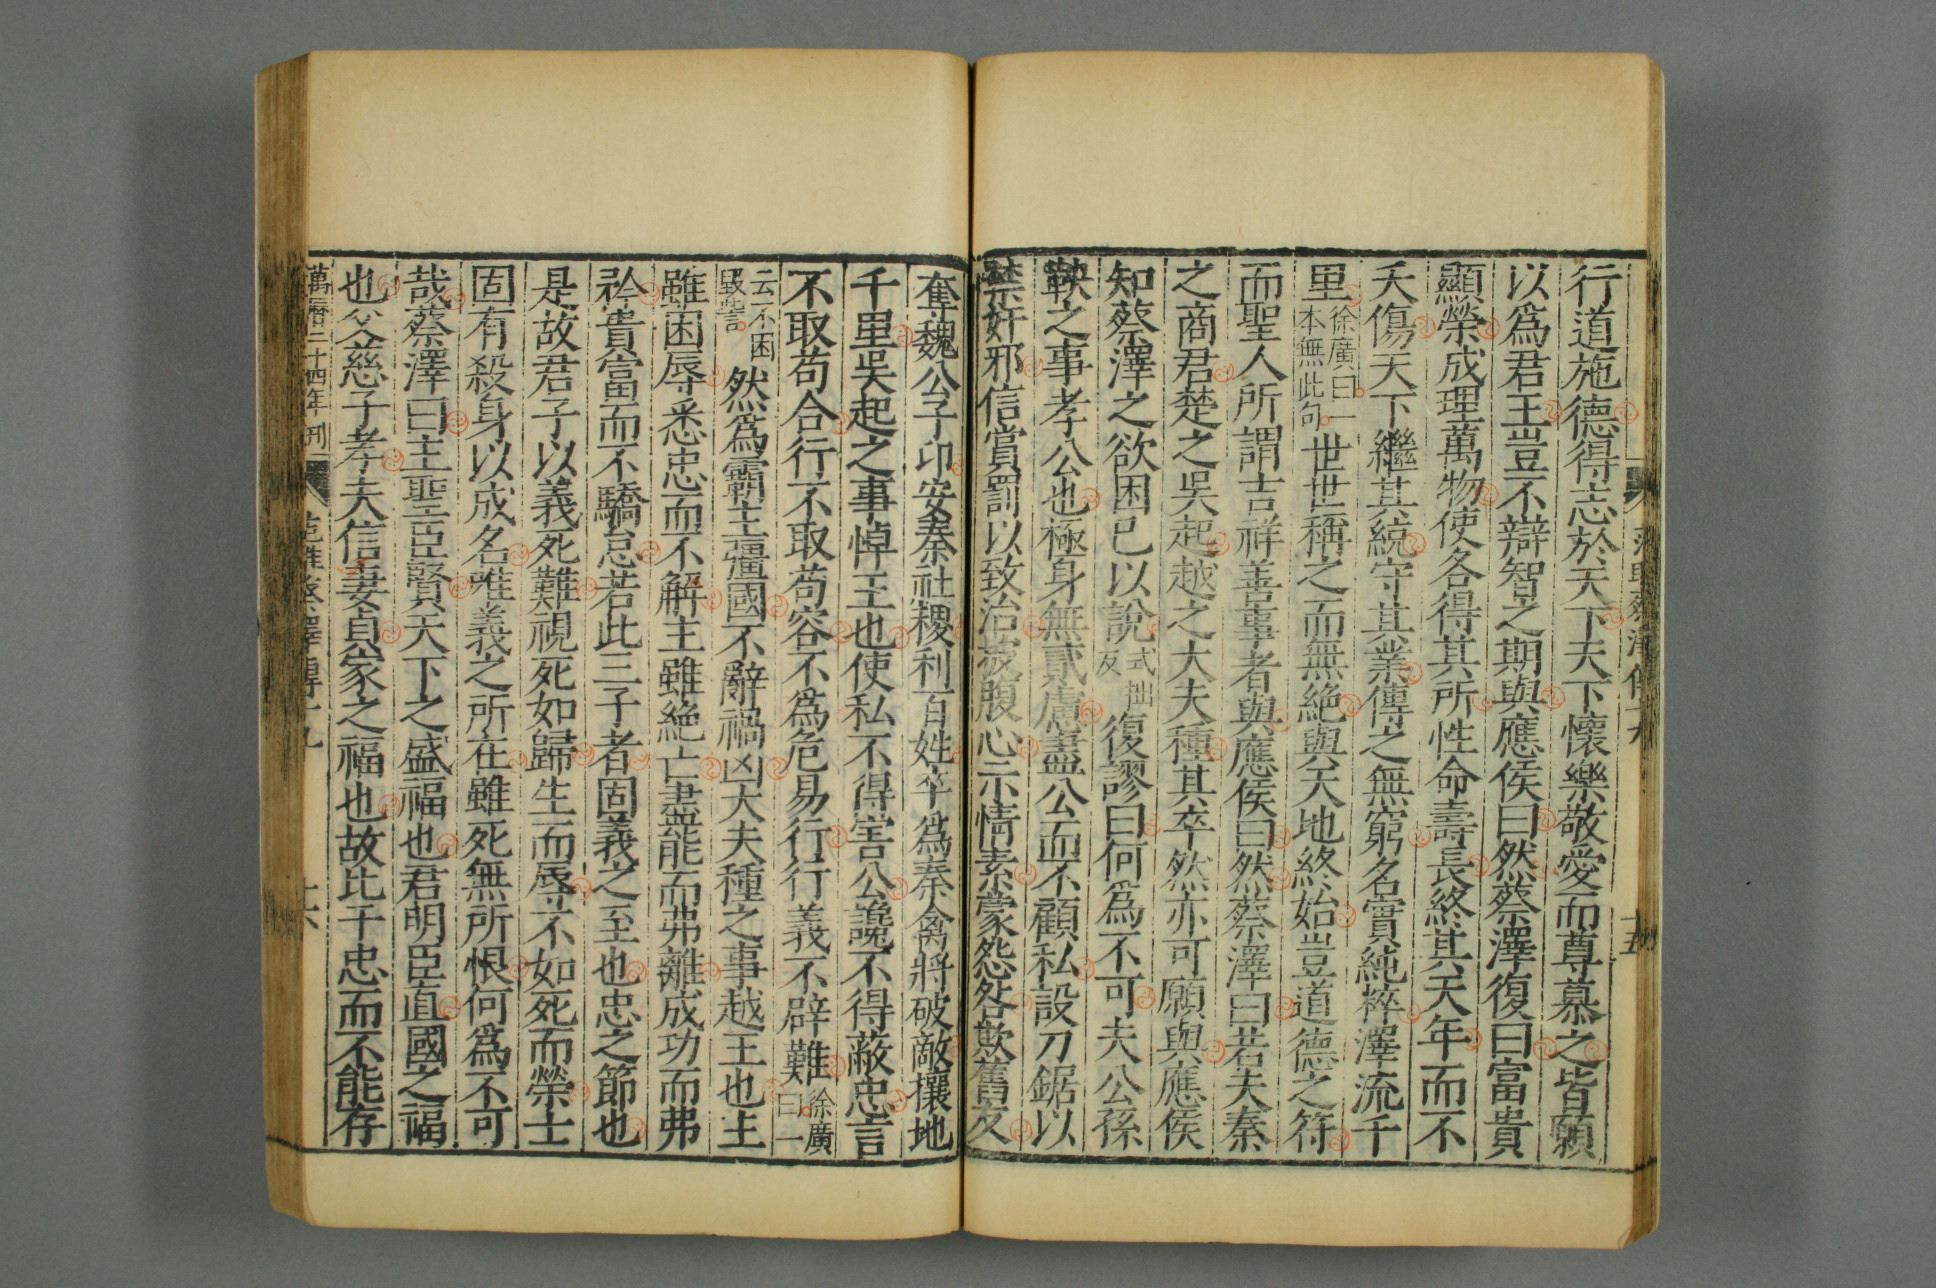 行道施德得志於天下天下懷樂敬愛而尊慕之皆願
以爲君王豈不辯智之期與應侯曰然蔡澤復曰富貴
顯榮成理萬物使各得其所性命壽長終其天年而不
夭傷天下繼其統守其業傳之無窮名實純粹澤流千
里徐廣曰一本無此句世世稱之而無絶與天地終始豈道德之符
而聖人所謂吉祥善事者與應侯曰然蔡澤曰若夫秦
之商君楚之吳起越之大夫種其卒然亦可願與應侯
知蔡澤之欲困已以說式拙反復謬曰何爲不可夫公孫
鞅之事孝公也極身無貳慮盡公而不顧私設刀鋸以
禁奸邪信賞罰以致治披腹心示情素蒙怨咎欺舊友
奪魏公子卬安秦社稷利百姓卒爲秦禽將破敵攘地
千里吳起之事悼王也使私不得害公讒不得蔽忠言
不取苟合行不取苟容不爲危易行行義不辟難徐廣曰一
云不困毀訾然爲霸主彊國不辭禍凶大夫種之事越王也主
雖困辱悉忠而不解主雖絶亡盡能而弗離成功而弗
矜貴富而不驕怠若此三子者固義之至也忠之節也
是故君子以義死難視死如歸生而辱不如死而榮士
固有殺身以成名唯義之所在雖死無所恨何爲不可
哉蔡澤曰主聖臣賢天下之盛福也君明臣直國之福
也父慈子孝夫信妻貞家之福也故比干忠而不能存
萬曆二十四年刊 范雎蔡澤傳十九 十六